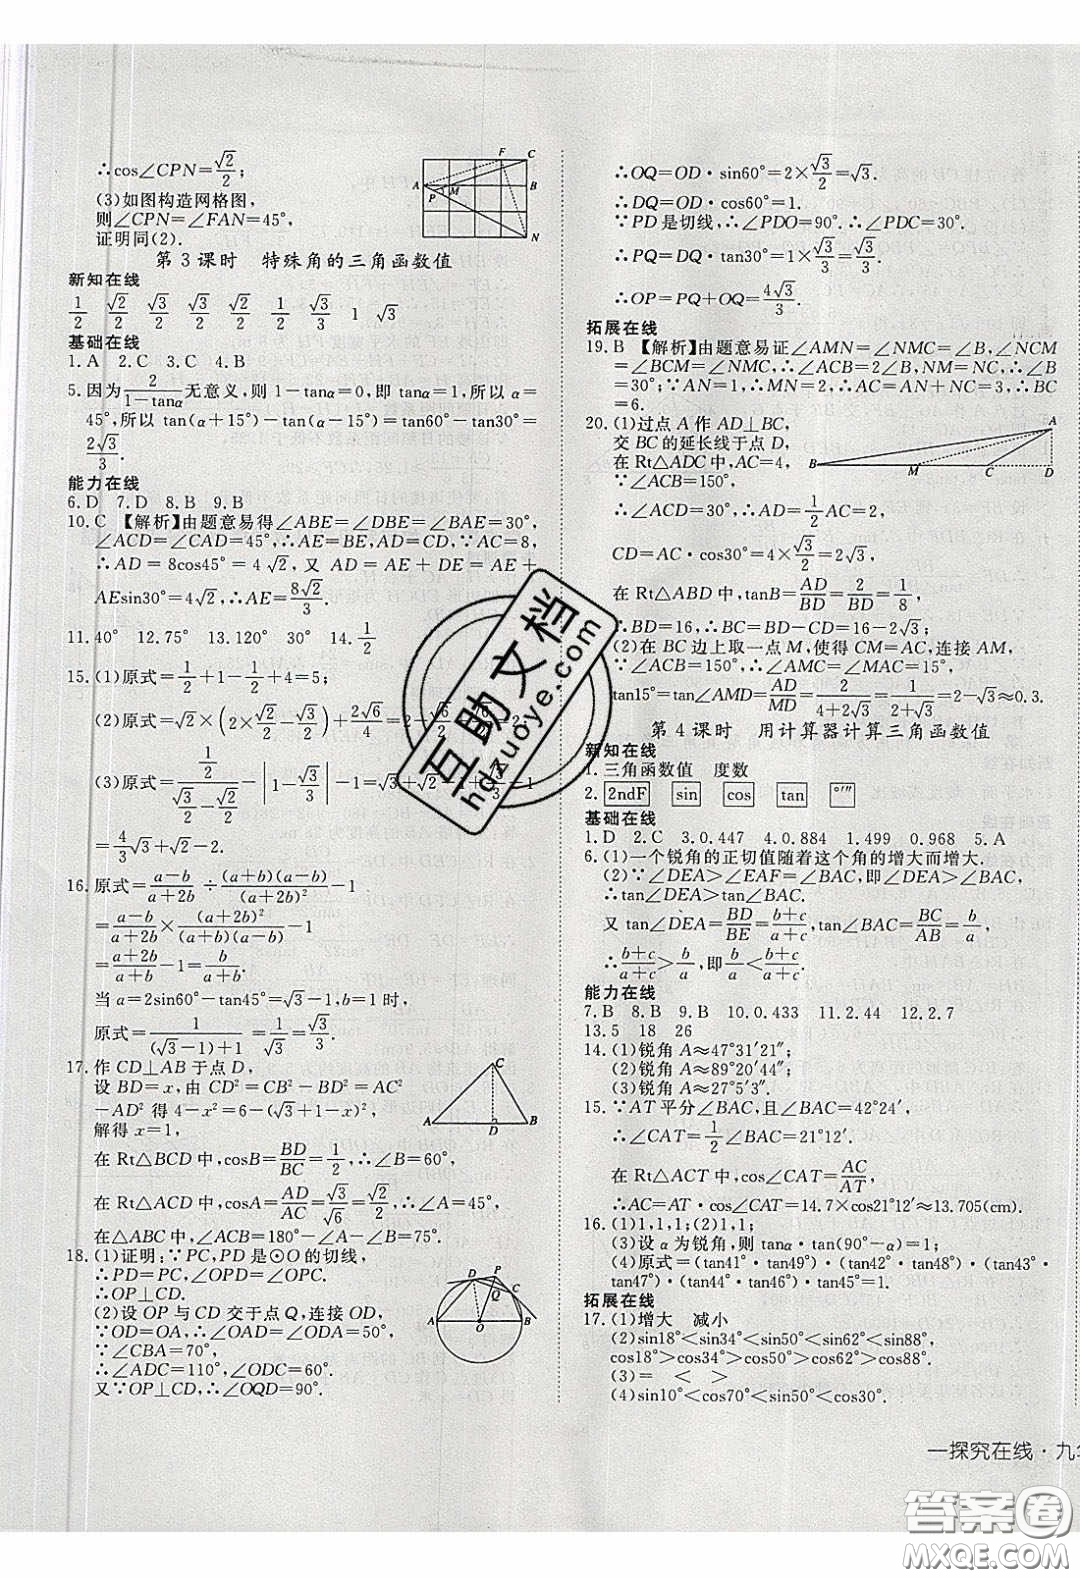 ∴cos∠CPN=√2/2;
(3)如图构造网格图,
则∠CPN=∠FAN=45°,
证明同(2).
F C
A M B
P
N
第 3 课时 特殊角的三角函数值
新知在线
1/2 √2/2 √3/2 √3/2 √2/2 1/2 √3/3 1 √3
基础在线
1.A 2.C 3.C 4.B
5.因为2/(1-tanα)无意义,则 1-tanα=0,即 tanα=1,所以 α=
45°,所以 tan(α+15°)-tan(α-15°)=tan60°-tan30°=
2√3/3.
能力在线
6.D 7.D 8.B 9.B
10.C 【解析】由题意易得∠ABE=∠DBE=∠BAE=30°,
∠ACD=∠CAD=45°,∴AE=BE,AD=CD.∵AC=8,
∴AD=8cos45°=4√2,又 AD=AE+DE=AE+
AEsin30°=4√2,∴AE=8√2/3.
11.40° 12.75° 13.120° 30° 14.1/2
15.(1)原式=1/2+1-1/2+4=5;
(2)原式=√2×(2×√2/2-√3/2)+2√6/4=2-√6/2+√6/2=2;
(3)原式=
=4/3√3+√2-2.
16.原式=(a-b)/(a+2b)÷(a+b)(a-b)/(a+2b)²-1
=(a-b)/(a+2b)×(a+2b)²/(a+b)(a-b)-1
=(a+2b)/(a+b)-1=b/(a+b).
当 a=2sin60°-tan45°=√3-1,b=1 时,
原式=1/((√3-1)+1)=1/√3=√3/3.
17.作 CD⊥AB 于点 D,
设 BD=x,由 CD²=CB²-BD²=AC²
-AD² 得 4-x²=6-(√3+1-x)²,
解得 x=1,
C
A D B
在 Rt△BCD 中,cosB=BD/BC=1/2,∴∠B=60°,
在 Rt△ACD 中,cosA=AD/AC=√3/√6=√2/2,∴∠A=45°,
在△ABC 中,∠ACB=180°-∠A-∠B=75°.
18.(1)证明:∵PC,PD 是⊙O 的切线,
∴PD=PC,∠OPD=∠OPC.
∴OP⊥CD.
(2)设 OP 与 CD 交于点 Q,连接 OD,
∵OD=OA,∴∠OAD=∠ODA=50°,
∵∠CBA=70°,
∴∠ADC=110°,∠ODC=60°.
又∵OP⊥CD,∴∠OQD=90°.
D P
Q C
A O B
∴OQ=OD·sin60°=2×√3/2=√3.
∴DQ=OD·cos60°=1.
∵PD是切线,∴∠PDO=90°.∴∠PDC=30°.
∴PQ=DQ·tan30°=1×√3/3=√3/3.
∴OP=PQ+OQ=4√3/3.
拓展在线
19.B 【解析】由题意易证∠AMN=∠NMC=∠B,∠NCM
=∠BCM=∠NMC,∴∠ACB=2∠B,NM=NC,∴∠B
=30°;∵AN=1,∴MN=2,∴AC=AN+NC=3,∴BC
=6.
20.(1)过点 A 作 AD⊥BC,
交 BC 的延长线于点 D,
在 Rt△ADC 中,AC=4,
∵∠ACB=150°,
A
B M C D
∴∠ACD=30°,∴AD=1/2AC=2,
CD=AC·cos30°=4×√3/2=2√3,
在 Rt△ABD 中,tanB=AD/BD=2/BD=1/8,
∴BD=16,∴BC=BD-CD=16-2√3;
(2)在 BC 边上取一点 M,使得 CM=AC,连接 AM,
∵∠ACB=150°,∴∠AMC=∠MAC=15°,
tan15°=tan∠AMD=AD/MD=2/(4+2√3)=1/(2+√3)=2-√3≈0.3.
第 4 课时 用计算器计算三角函数值
新知在线
1.三角函数值 度数
2. 2ndF sin cos tan °′″
基础在线
1.D 2.C 3.0.447 4.0.884 1.499 0.968 5.A
6.(1)一个锐角的正切值随着这个角的增大而增大.
(2)∵∠DEA>∠EAF=∠BAC,即∠DEA>∠BAC,
∴tan∠DEA>tan∠BAC.
又 tan∠DEA=BD/BE=(b+c)/(a+c),tan∠BAC=BC/AB=b/a,
∴(b+c)/(a+c)>b/a,即b/a<(b+c)/(a+c).
能力在线
7.B 8.B 9.B 10.0.433 11.2.44 12.2.7
13.5 18 26
14.(1)锐角 A≈47°31′21″;
(2)锐角 A≈89°20′44″;
(3)锐角 A≈27°5′3″.
15.∵AT 平分∠BAC,且∠BAC=42°24′,
∴∠CAT=1/2∠BAC=21°12′.
在 Rt△ACT 中,cos∠CAT=AC/AT,
∴AC=AT·cos∠CAT=14.7×cos21°12′≈13.705(cm).
16.(1)1,1,1;(2)1,1;
(3)设 α 为锐角,则 tanα·tan(90°-α)=1;
(4)原式=(tan41°·tan49°)·(tan42°·tan48°)·(tan43°·
tan47°)·(tan44°·tan46°)·tan45°=1.
拓展在线
17.(1)增大 减小
(2)sin18°<sin34°<sin50°<sin62°<sin88°,
cos18°>cos34°>cos50°>cos62°>cos88°.
(3)= < >
(4)sin10°<cos70°<sin50°<cos30°.
一探究在线·九
互助文档
hdzuoye.com
答案圈
MXQE.COM